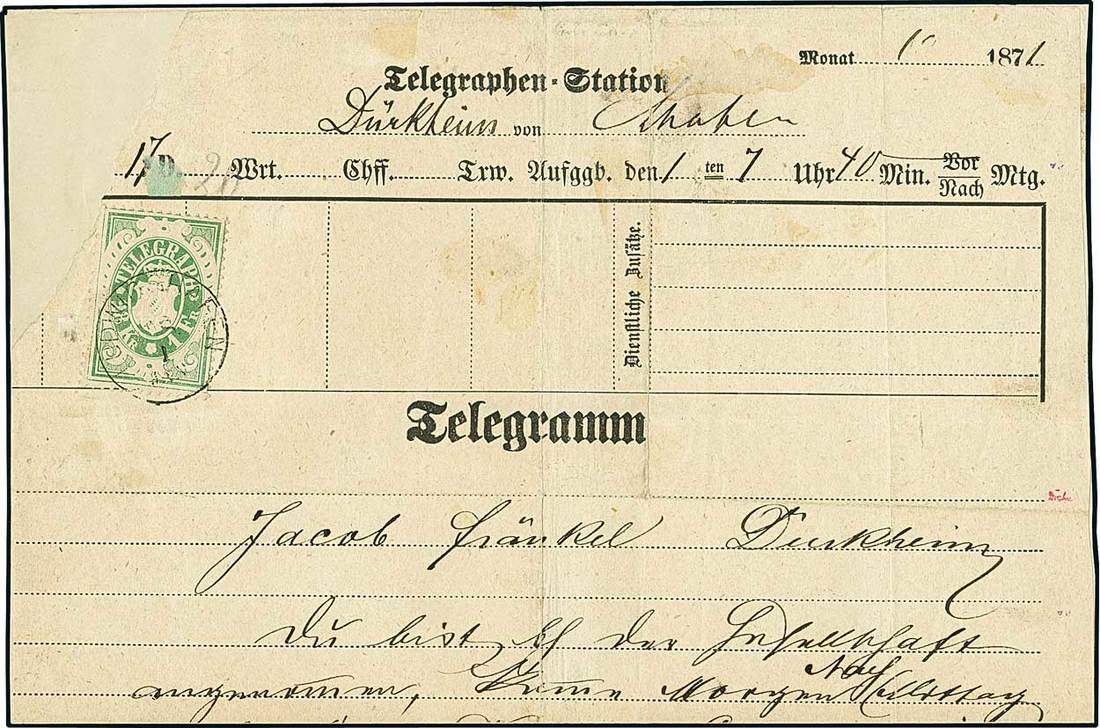 Monat 1871
Telegraphen-Station
Dürkheim von
17 D. 20 Wrt. Chff. Trw. Aufggb. den 1 ten 7 Uhr 40 Min. Vor/Nach Mtg.
TELEGRAPH
1 FR
Dienstliche Zusätze.
Telegramm
Jacob Fränkel Dürkheim
Du bist der Gesellschaft
Nach
angenommen, komme Morgen Mittag